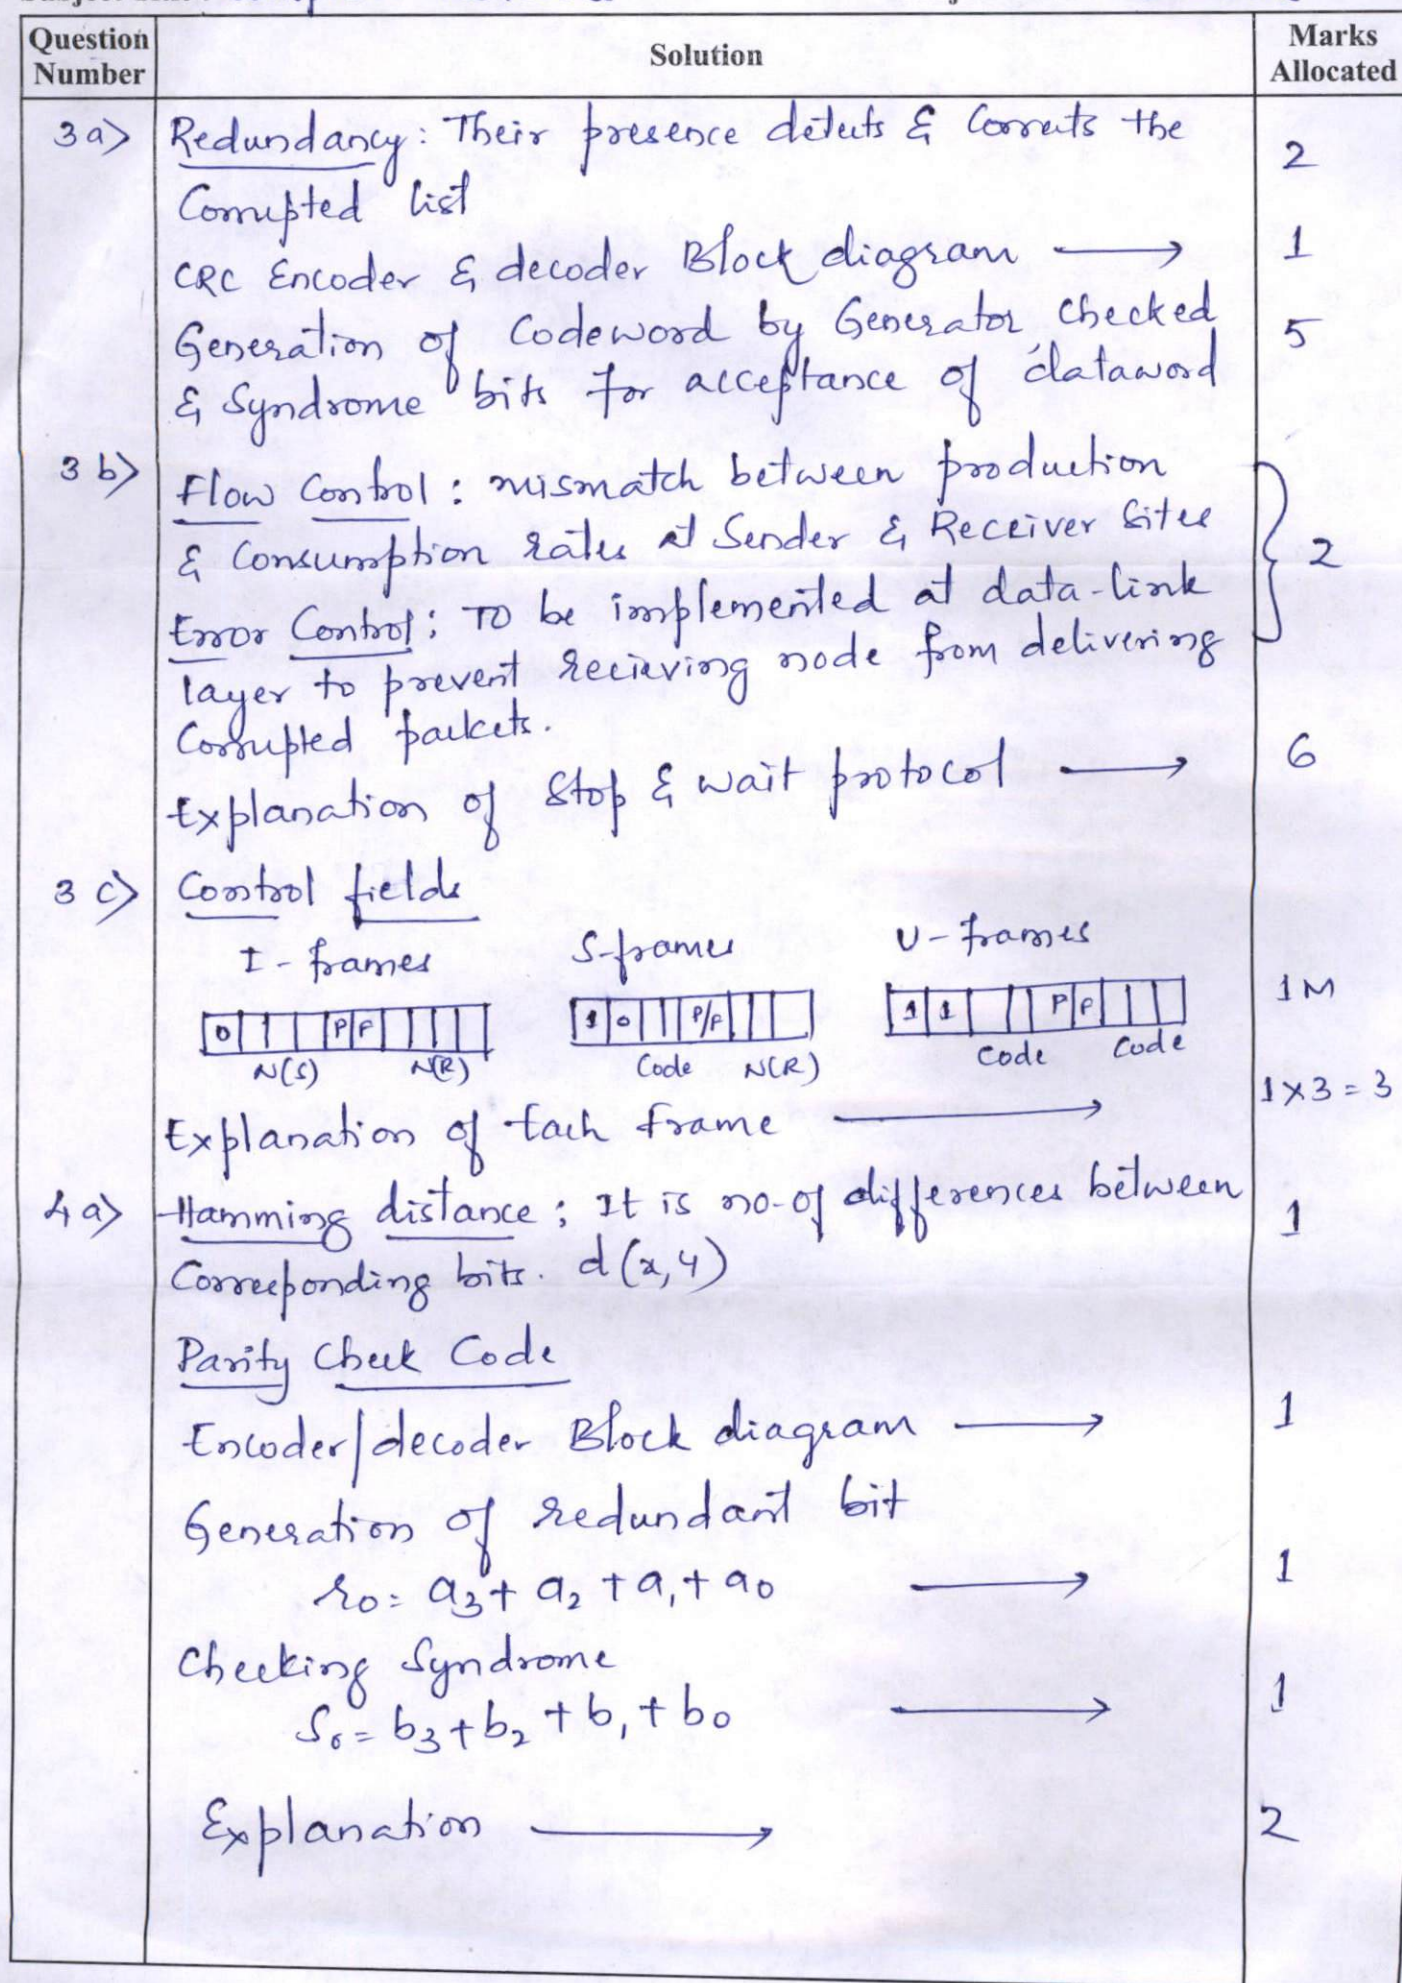 Question Number
Solution
Marks Allocated
3a) Redundancy: Their presence detects & Corrects the 2
Corrupted list
CRC Encoder & decoder Block diagram → 1
Generation of Codeword by Generator Checked 5
& Syndrome bits for acceptance of dataword
3b) Flow Control: mismatch between production
& Consumption rates at Sender & Receiver Sites 2
Error Control: To be implemented at data-link
layer to prevent recieving node from delivering
Corrupted packets.
Explanation of Stop & wait protocol → 6
3c) Control fields
I-frames S-frames U-frames
0 P F 1 0 P/F 1 1 P F 1M
N(S) N(R) Code N(R) Code Code
Explanation of Each Frame → 1X3=3
4a) Hamming distance: It is no-of differences between 1
Corresponding bits. d(x,y)
Parity Check Code
Encoder/decoder Block diagram → 1
Generation of redundant bit
r0= a3+a2+a1+a0 → 1
Checking Syndrome
S0= b3+b2+b1+b0 → 1
Explanation → 2